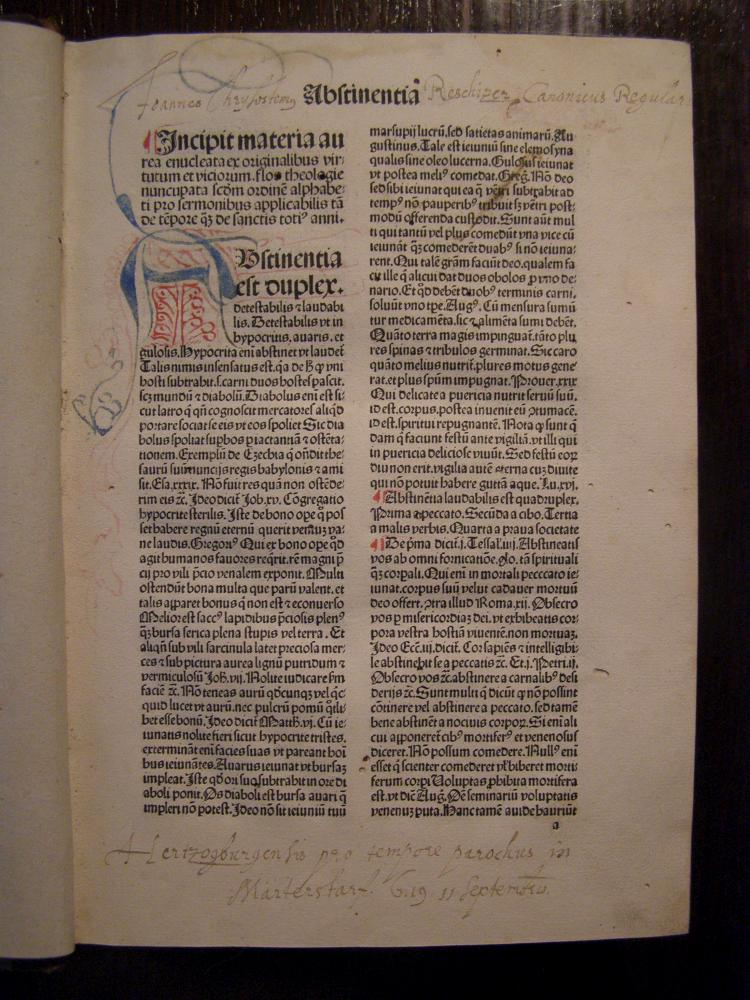 Joannes Chrysostomus Abstinentia Reschizer Canonicus Regular
¶Incipit materia au
rea enucleata ex originalibus vir⸗
tutum et viciorum. flos theologie
nuncupata scđm ordinē alphabe⸗
ti pro sermonibus applicabilis tā
de tēpore qȝ de sanctis totiꝰ anni.
ABstinentia
est duplex.
detestabilis ⁊ laudabi
lis. Detestabilis vt in
hypocritis, auaris. et
gulosis. Hypocrita eni abstinet vt laudet̄
Talis nimis insensatus est. qa de hͦ qͩ vni
hosti subtrahit. s. carni duos hostes pascit.
scȝ mundū ⁊ diabolū. Diabolus eni est si⸗
cut latro q̇ qn̄ cognoscit mercatores aliqd
portare sociat se eis vt eos spoliet Sic dia
bolus spoliat supbos ꝑ iactantiā ⁊ ostēta⸗
tionem. Exemplū de Ezechia q̇ on̄dit the⸗
saurū suū nuncijs regis babylonis ⁊ ami
sit. Esa. xxxix. Nō fuit res quā non ostēde⸗
rim eis ⁊c̄. Ideo dicit̄ Job. xv. Cōgregatio
hypocrite sterilis. Iste de bono ope q̇ pos
set habere regnū eternū querit ventuȝ va⸗
ne laudis. Gregoriꝰ Qui ex bono ope qd
agit humanos fauores reqrit. rē magni p̄
cij pro vili p̄cio venalem exponit. Multi
ostendūt bona multa que parū valent. et
talis apparet bonus q̇ non est ⁊ econuerso
Melior est saccꝰ lapidibus p̄ciosis plenꝰ
qȝ bursa serica plena stupis vel terra. Et
aliqn̄ sub vili sarcinula latet preciosa mer⸗
ces ⁊ sub pictura aurea lignū putridum ⁊
vermiculosū Joh. vij. Nolite iudicare ẜm
faciē ⁊c̄. Nō teneas aurū qdcunqȝ vel qc⸗
quid lucet vt aurū. nec pulcrū pomū q̇li⸗
bet esse bonū. Ideo dicit̄ Matth. vj. Cū ie⸗
iunatis nolite fieri sicut hypocrite tristes.
extermināt eni facies suas vt pareant hoī
bus ieiunātes. Auarus ieiunat vt bursaȝ
impleat. Iste qd ori suo subtrahit in ore di
aboli ponit. Os diaboli est bursa auari q̄
impleri nō potest. Ideo nō sit ieiuniū tuū
marsupij lucrū. sed satietas animarū. Au
gustinus. Tale est ieiuniū sine elemosyna
qualis sine oleo lucerna. Gulosus ieiunat
vt postea meliꝰ comedat. Greg. Nō deo
sed sibi ieiunat qui ea q̄ vētri subtrahit ad
tempꝰ nō pauperibꝰ tribuit sȝ vētri post⸗
modū offerenda custodit. Sunt aūt mul
ti qui tantū vel plus comedūt vna vice cū
ieiunāt qȝ comederēt duabꝰ si nō ieiuna⸗
rent. Qui talē grām faciūt deo. qualem fa
cit ille q̇ alicui dat duos obolos ꝓ vno de⸗
nario. Et qd debēt duobꝰ terminis carni.
soluūt vno tpe. Augꝰ. Cū mensura sumū
tur medicamēta. sic ⁊ alimēta sumi debēt.
Quāto terra magis impinguat̄. tāto plu
res spinas ⁊ tribulos germinat. Sic caro
quāto melius nutrit̄. plures motus gene
rat. et plus spūm impugnat. Prouer. xxix
Qui delicate a puericia nutrit seruū suū.
id est corpus. postea inueniet eū ↄtumacē.
id est. spiritui repugnantē. Nota qͩ sunt q̇
dam q̇ faciunt festū ante vigiliā. vt illi qui
in puericia deliciose viuūt. Sed festū eoꝝ
diu non erit. vigilia autē eterna cuȝ diuite
qui nō potuit habere guttā aque. Lu. xvj.
¶Abstinētia laudabilis est quadruplex.
Prima a peccato. Secūda a cibo. Tertia
a malis verbis. Quarta a praua societate
¶De p̄ma dicit̄. j. Tessal. iiij. Abstineatis
vos ab omni fornicatiōe. Glo. tā spirituali
qȝ corpali. Qui eni in mortali peccato ie⸗
iunat. corpus suū velut cadauer mortuū
deo offert. ↄtra illud Roma. xij. Obsecro
vos ꝑ misericordiaȝ dei. vt exhibeatis cor⸗
pora vestra hostiā viuentē. non mortuaȝ.
Ideo Ecc. iij. dicit̄. Cor sapiēs ⁊ intelligibi⸗
le abstinebit se a peccatis ⁊c̄. Et. j. Petri. ij.
Obsecro vos ⁊c̄. abstinere a carnalibꝰ desi
derijs ⁊c̄. Sunt multi q̇ dicūt qͩ nō possint
cōtinere vel abstinere a peccato. sed tamē
bene abstinēt a nociuis corpoꝝ. Si eni ali
cui apponeret̄ cibꝰ mortifer et venenosus
diceret. Nō possum comedere. Nullꝰ eni
esset q̇ scienter comederet vl̓ biberet morti⸗
ferum corpi Voluptas ꝓhibita mortifera
est. vt dic̄ Aug. Oē seminariū voluptatis
venenuȝ puta. Hanc tamē auide hauriūt
a
Hertzogburgensis pro tempore parochus in
11 Septembris.